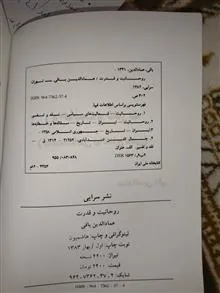 باقی، عمادالدین، ۱۳۴۱ -
روحانیت و قدرت / عمادالدین باقی. — تهران
سرایی، ۱۳۸۲.
۲۰۲ ص.
ISBN 964-7362-37-4
فهرستنویسی براساس اطلاعات فیپا.
۱. روحانیت -- فعالیت‌های سیاسی -- نقد و تفسیر
۲. روحانیت -- ایران -- تاریخ --
۳. ایران -- تاریخ -- جمهوری اسلامی، ۱۳۵۸ -
نقد و تفسیر. الف. عنوان.
۹۵۵/۰۸۴۰۸۲۸
DSR
کتابخانه ملی ایران
نشر سرایی
روحانیت و قدرت
عمادالدین باقی
لیتوگرافی و چاپ: هاشمیون
نوبت چاپ: اول / بهار ۱۳۸۳
تیراژ: ۲۲۰۰ نسخه
قیمت: ۲۴۰۰ تومان
شابک: ۴ ـ ۳۷ ـ ۷۳۶۲ ـ ۹۶۴
ISBN: 964 - 7362 - 37 - 4